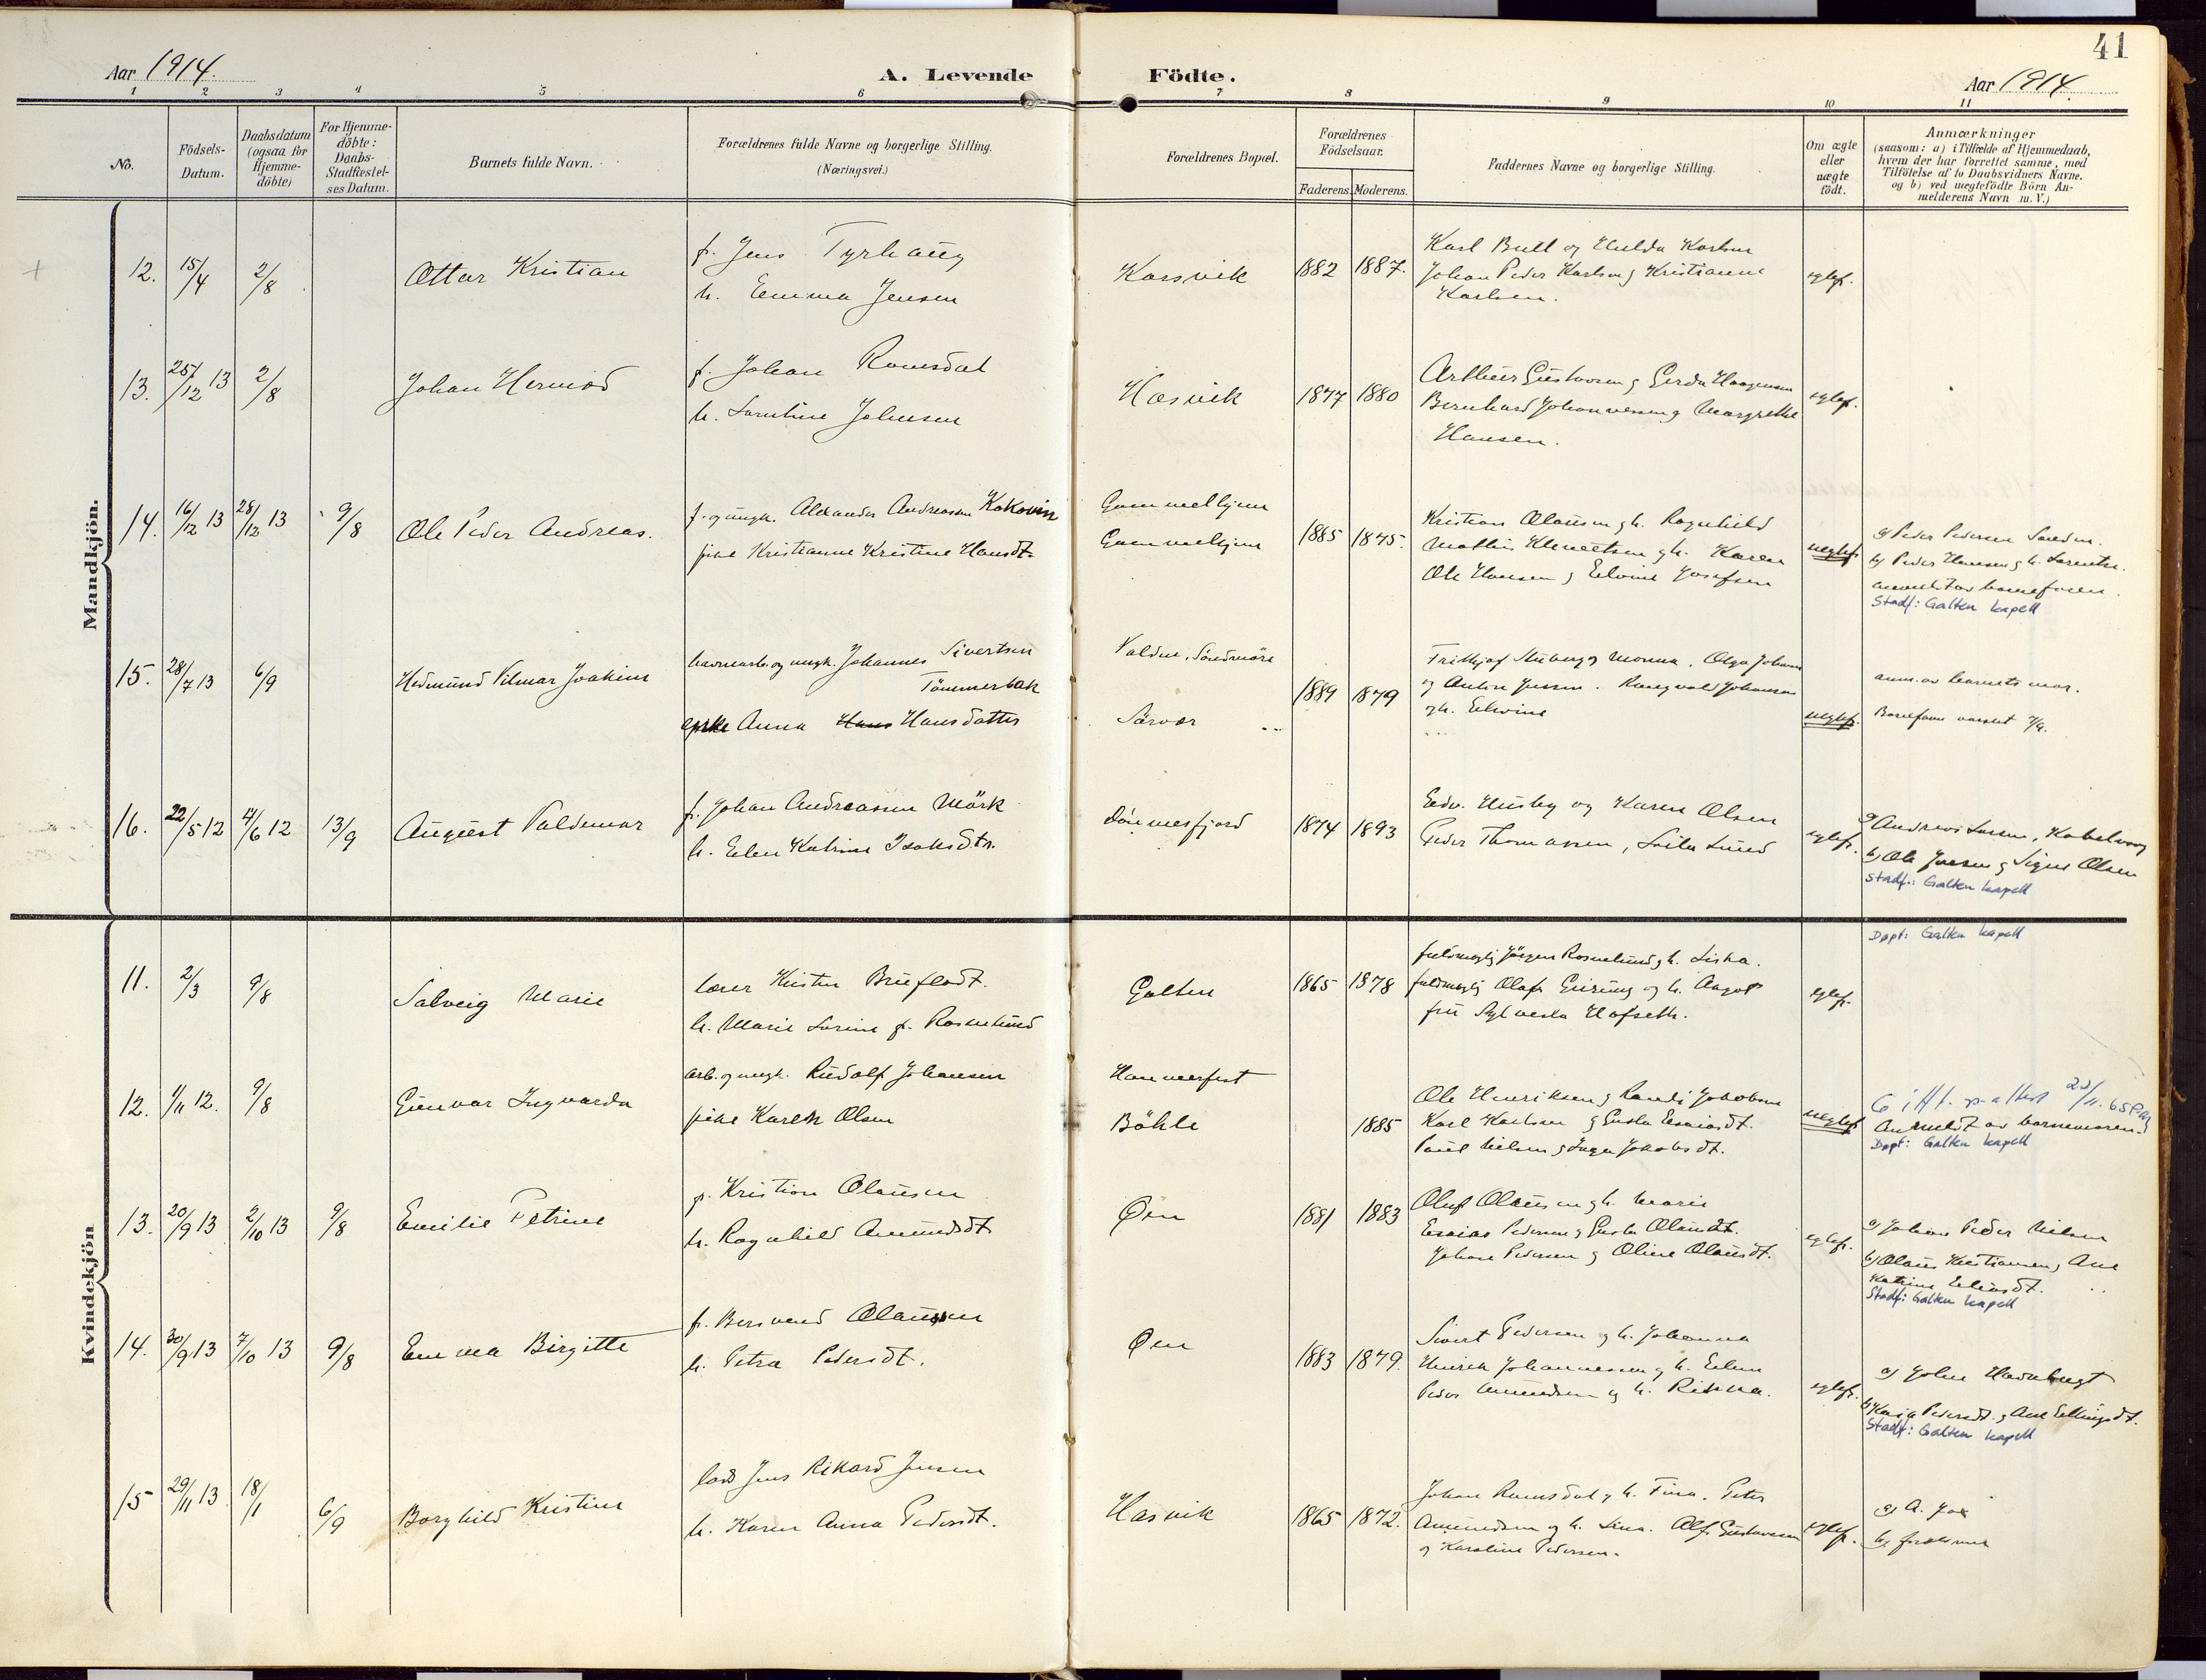 41
Aar 1914.
A. Levende Födte.
Aar 1914.
1 2 3 4 5 6 7 8 9 10 11
No.
Födsels-Datum.
Daabsdatum (ogsaa for Hjemme-döbte)
For Hjemme-döbte: Daabs-Stadfæstel-ses Datum.
Barnets fulde Navn.
Forældrenes fulde Navne og borgerlige Stilling.
(Næringsvei.)
Forældrenes Bopæl.
Forældrenes Födselsaar.
Faderens. Moderens.
Faddernes Navne og borgerlige Stilling.
Om ægte eller uægte födt.
Anmærkninger
(saasom: a) i Tilfælde af Hjemmedaab, hvem der har forrettet samme, med Tilföielse af to Daabsvidners Navne. og b) ved uægtefödte Börn An-melderens Navn m. V.)
Mandkjön.
12. 15/4 2/8 Ottar Kristian
f. Jens Tyrhaug
h. Emma Jensen
Karsvik 1882 1887.
Karl Bull og Hulda Karlsen
Johan Peder Karlsen og Kristianne
Karlsen.
egtef.
13. 25/12 13 2/8 Johan Hermod
f. Johan Romsdal
h. Larntine Johnsen
Hasvik 1877 1880
Arthur Gustavsen og Gerda Haagensen
Bernhard Johannesen og Margrethe
Hansen.
egtef.
14. 16/12 13 28/12 13 9/8 Ole Peder Andreas.
f. og ungk. Alexander Andreassen Kokovin
pike Kristianne Kristine Hansdt.
Gammelhjem
Gammelhjem
1885 1875.
Kristian Olausen og h. Ragnhild
Mathis Klemetsen og h. Karen
Ole Hansen og Elvine Josefsen
uegtef.
a) Peder Pedersen Sandm.
b) Peder Hansen og h. Larentse.
anmeldt av barnefaren.
Stadf: Galten kapell
15. 28/7 13 6/9 Hedmund Vilmar Joakim
havnearb. og ungk. Johannes Sivertsen
Tömmerbak
enke Anna Hansdatter
Valdne, Söndmöre
Sörvær
1889 1879
og Anton Jensen. Ragnvald Johansen
og h. Elvine
uegtef.
anm. av barnets mor.
16. 22/5 12 4/6 12 13/9 August Valdemar
f. Johan Andreassen Mörk
h. Elen Katrine Isaksdtr.
Dönnesfjord 1874 1893
Edv. Husby og Karen Olsen
Peder Thomassen, Laila Lund
egtef.
a) Andreas Larsen, Kabelvaag
b) Ole Jensen og Signe Olsen
Stadf.: Galten kapell
Kvindekjön
11. 2/3 9/8 Solveig Marie
lærer Kristen Brufladt.
h. Marie Lorine f. Rosenlund
Galten 1865 1878
fuldmegtig Jörgen Rosenlund og h. Liska.
fuldmegtig Olaf Grisung og h. Aagot
fru Sylvesta Hofseth.
egtef.
Døpt: Galten kapell
12. 1/11 12. 9/8 Gunvor Ingvarda
arb. og ungk. Rudolf Johansen
pike Karen Olsen
Hammerfest
Böhle
1885
Ole Henriksen og Randi Jakobsen
Karl Karlsen og Gusta Esaiasdt.
Paul Nilsen og Inga Jakobsdt.
uegtef.
Anmeldt av barnemoren.
Døpt: Galten kapell
13. 20/9 13 2/10 13 9/8 Emilie Petrine
f. Kristian Olausen
h. Ragnhild Amundsdt
Øen 1881 1883
Oluf Olausen og h. Marie
Esaias Pedersen og Gusta Olausdt.
Johan Pedersen og Oline Olausdt.
egtef.
a) Johan Peder Nilsen
b) Olaus Kristiansen, Ane
Katrine Eliasdt.
Stadf: Galten kapell
14. 30/9 13 7/10 13 9/8 Emma Birgitte
f. Bersvend Olaussen
h. Petra Pedersdt.
Øen 1883 1879.
Sivert Pedersen og h. Johanna
Henrik Johannesen og h. Elen
Peder Amundsen og h. Rikka.
egtef.
a) John Havnbugt
b) Maja Pedersdt. og Ane Ellingsdt.
Stadf: Galten kapell
15 29/11 13 18/1 6/9 Borghild Kristine
lods Jens Rikard Jensen
h. Karen Anna Pedersdt.
Hasvik 1865 1872.
Johan Romsdal og h. Tina. Peter
Amundsen og h. Lina. Alf Gustavsen
og Karoline Pedersen.
egtef.
a) A. Fox
b) forældrene